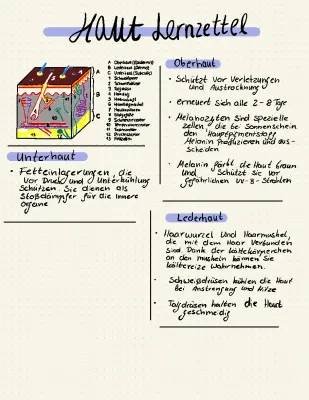 Haut Lernzettel
A Oberhaut (Epidermis)
B Lederhaut (Dermis)
C Unterhaut (Subcutis)
A
B
C
Oberhaut
• Schützt vor Verletzungen
und Austrocknung
• erneuert sich alle 2-8 Tage
• Melanozyten sind spezielle
zellen, die bei Sonnenschein
den Hauptpigmentstoff
Melanin produzieren und aus-
scheiden
• Melanin färbt die Haut braun
und schützt sie vor
gefährlichen UV-B-Strahlen
Unterhaut
• Fetteinlagerungen, die
vor Druck und Unterkühlung
schützen. Sie dienen als
Stoßdämpfer für die innere
Organe
Lederhaut
• Haarwurzel und Haarmuskel,
die mit dem Haar verbunden
sind. Dank der kältekörperchen
an den muskeln können Sie
kältereize wahrnehmen.
• Schweißdrüsen kühlen die Haut
bei Anstrengung und Hitze
• Talgdrüsen halten die Haut
geschmeidig